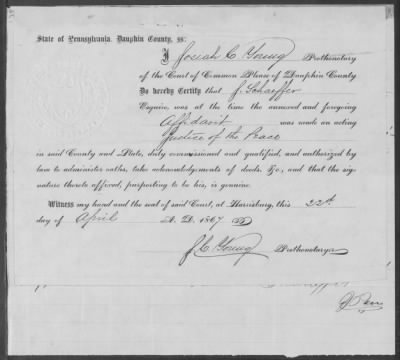 State of Pennsylvania, Dauphin County, ss:
I Josiah C Young Prothonotary
of the Court of Common Pleas of Dauphin County
Do hereby Certify that J. Schaeffer
Esquire, was at the time the annexed and foregoing
Affidavit was made an acting
Justice of the Peace
in said County and State, duly commissioned and qualified, and authorized by
law to administer oaths, take acknowledgements of deeds, &c, and that the sig-
nature thereto offered, purporting to be his, is genuine.
Witness my hand and the seal of said Court, at Harrisburg, this 22d
day of April A. D. 1867
J C Young Prothonotary